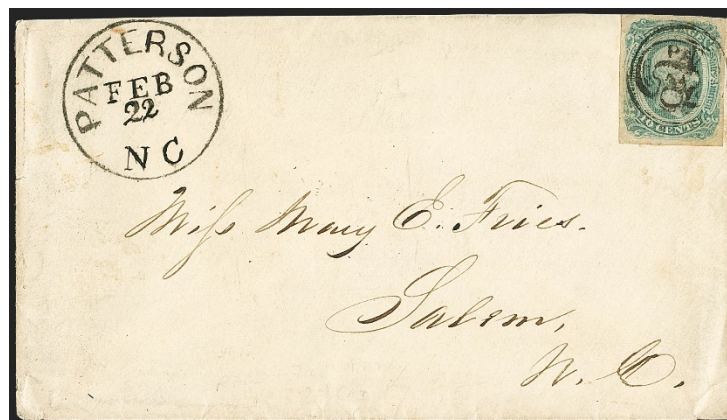 PATTERSON
FEB
22
N C
TEN CENTS
Miſs Mary E. Fries.
Salem,
N. C.